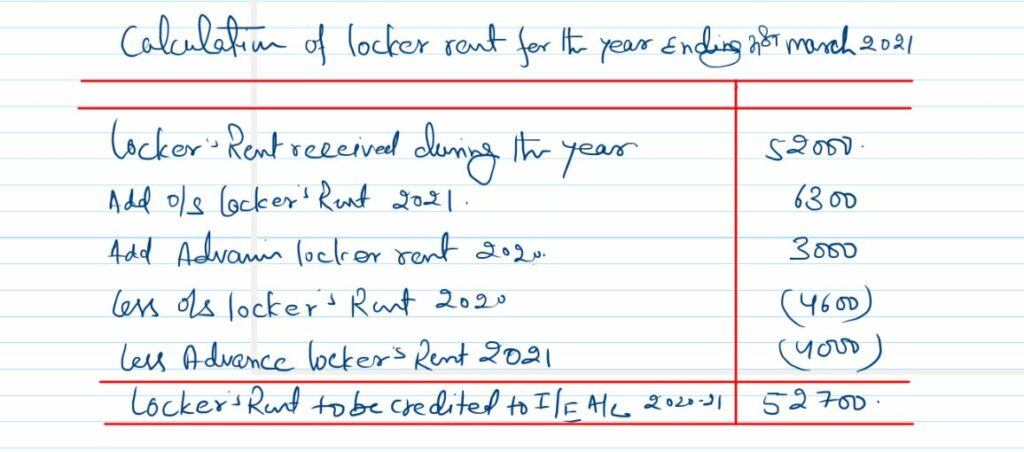 Calculation of locker rent for the year Ending 31st march 2021
Locker's Rent received during the year 52000.
Add o/s locker's Rent 2021. 6300
Add Advance locker rent 2020. 3000
less o/s locker's Rent 2020 (4600)
less Advance locker's Rent 2021 (4000)
Locker's Rent to be credited to I/E A/c 2020-21 52700.